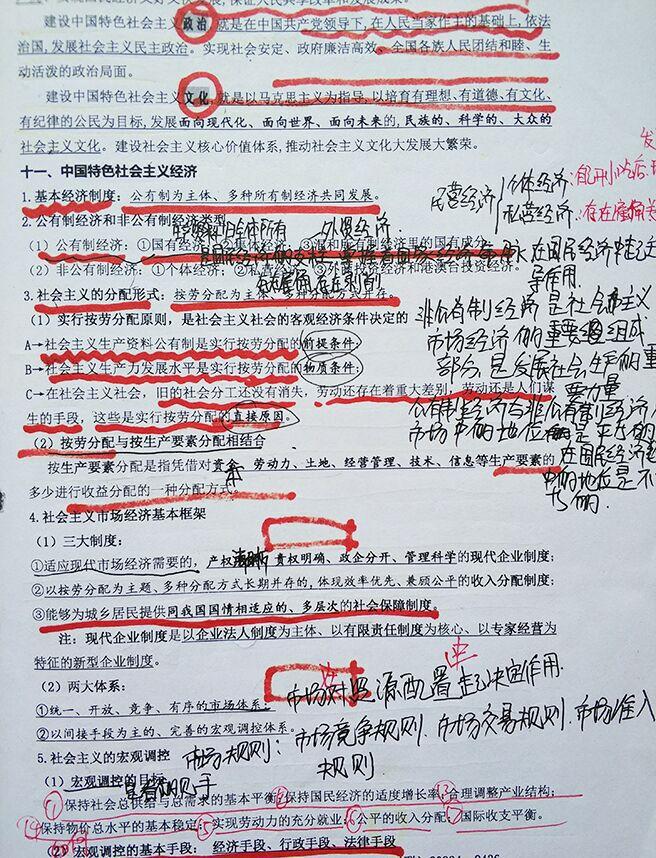 建设中国特色社会主义政治,就是在中国共产党领导下,在人民当家作主的基础上,依法
治国,发展社会主义民主政治。实现社会安定、政府廉洁高效、全国各族人民团结和睦、生
动活泼的政治局面。
建设中国特色社会主义文化,就是以马克思主义为指导,以培育有理想、有道德、有文化、
有纪律的公民为目标,发展面向现代化、面向世界、面向未来的,民族的、科学的、大众的
社会主义文化。建设社会主义核心价值体系,推动社会主义文化大发展大繁荣。
十一、中国特色社会主义经济
1.基本经济制度:公有制为主体、多种所有制经济共同发展。
民营经济 个体经济:
私营经济:存在雇佣
2.公有制经济和非公有制经济类型
外资经济
(1)公有制经济:①国有经济②集体经济③混和所有制经济里的国有成分
(2)非公有制经济:①个体经济②私营经济③外商投资经济和港澳台投资经济。
在国民经济
导作用.
3.社会主义的分配形式:按劳分配为主体、多种分配方式并存。
(1)实行按劳分配原则,是社会主义社会的客观经济条件决定的
A→社会主义生产资料公有制是实行按劳分配的前提条件;
B→社会主义生产力发展水平是实行按劳分配的物质条件;
C→在社会主义社会,旧的社会分工还没有消灭,劳动还存在着重大差别,劳动还是人们谋
生的手段,这些是实行按劳分配的直接原因。
非公有制经济是社会主义
市场经济的重要组成
部分,是发展社会生产的重
要力量
公有制经济与非公有制经济
市场中的地位是平等的
在国民经济
中的地位是不
(2)按劳分配与按生产要素分配相结合
按生产要素分配是指凭借对资本、劳动力、土地、经营管理、技术、信息等生产要素的
多少进行收益分配的一种分配方式。
4.社会主义市场经济基本框架
(1)三大制度:
①适应现代市场经济需要的,产权清晰、责权明确、政企分开、管理科学的现代企业制度;
②以按劳分配为主题、多种分配方式长期并存的,体现效率优先、兼顾公平的收入分配制度;
③能够为城乡居民提供同我国国情相适应的、多层次的社会保障制度。
注:现代企业制度是以企业法人制度为主体、以有限责任制度为核心、以专家经营为
特征的新型企业制度。
(2)两大体系:
市场对资源配置起决定作用.
①统一、开放、竞争、有序的市场体系;
②以间接手段为主的、完善的宏观调控体系。
市场规则:市场竞争规则.市场交易规则.市场准入
规则
5.社会主义的宏观调控
(1)宏观调控的目标
①保持社会总供给与总需求的基本平衡②保持国民经济的适度增长率③合理调整产业结构;
④保持物价总水平的基本稳定⑤实现劳动力的充分就业⑥公平的收入分配⑦国际收支平衡。
(2)宏观调控的基本手段:经济手段、行政手段、法律手段